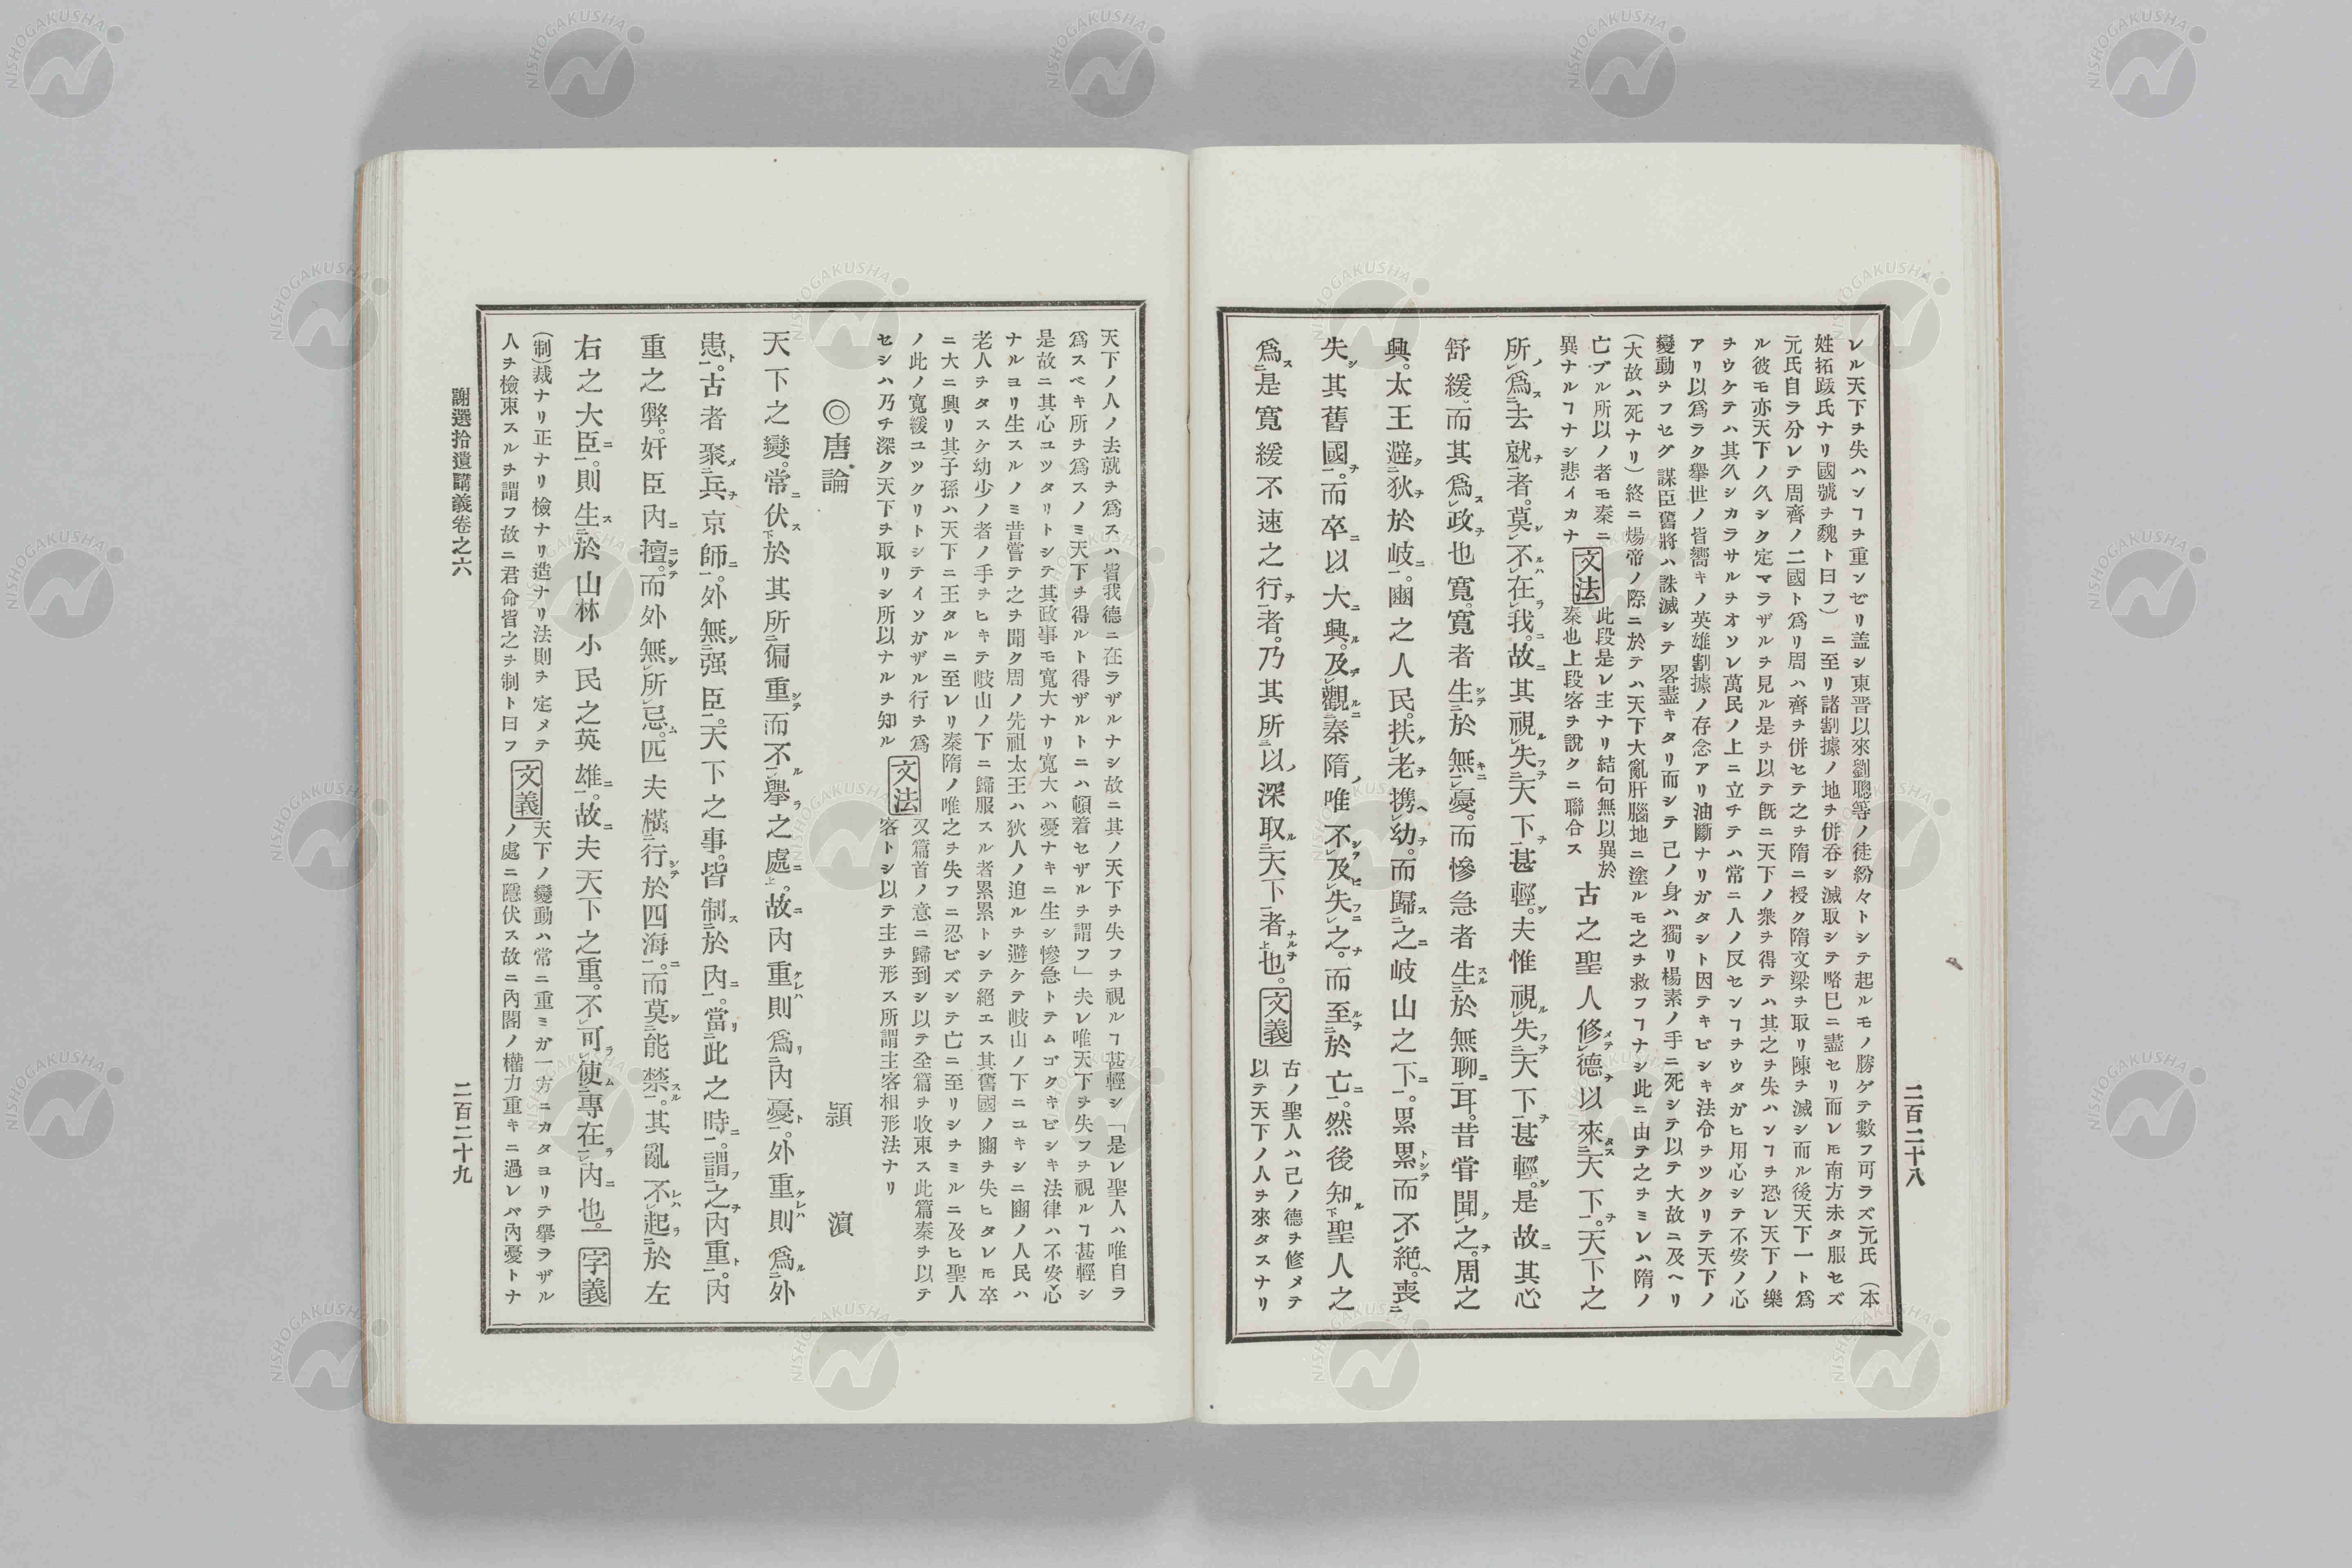 レル天下ヲ失ハンヿヲ重ンゼリ盖シ東晋以來劉聰等ノ徒紛々トシテ起ルモノ勝ゲテ數フ可ラズ元氏(本
姓拓跋氏ナリ國號ヲ魏ト曰フ)ニ至リ諸割據ノ地ヲ併呑シ滅取シテ略巳ニ盡セリ而レ𪜈南方未タ服セズ
元氏自ラ分レテ周齊ノ二國ト爲リ周ハ齊ヲ併セテ之ヲ隋ニ授ク隋文梁ヲ取リ陳ヲ滅シ而ル後天下一ト爲
ル彼モ亦天下ノ久シク定マラザルヲ見ル是ヲ以テ旣ニ天下ノ衆ヲ得テハ其之ヲ失ハンヿヲ恐レ天下ノ樂
ヲウケテハ其久シカラサルヲオソレ萬民ノ上ニ立チテハ常ニ人ノ反センヿヲウタガヒ用心シテ不安ノ心
アリ以爲ラク擧世ノ皆嚮キノ英雄割據ノ存念アリ油斷ナリガタシト因テキビシキ法令ヲツクリテ天下ノ
變動ヲフセグ謀臣舊將ハ誅滅シテ畧盡キタリ而シテ己ノ身ハ獨リ楊素ノ手ニ死シテ以テ大故ニ及ヘリ
(大故ハ死ナリ)終ニ煬帝ノ際ニ於テハ天下大亂肝腦地ニ塗ルモ之ヲ救フヿナシ此ニ由テ之ヲミレハ隋ノ
亡ブル所以ノ者モ秦ニ
異ナルヿナシ悲イカナ
文法
此段是レ主ナリ結句無以異於
秦也上段客ヲ說クニ聯合ス
古之聖人修メテ德ヲ以來タス天下ヲ。天下之
所ノ爲ス去就ヲ者。莫シ不ルハ在ラ我ニ。故ニ其視ル失フヲ天下ヲ甚輕シ。夫惟視ル失フヲ天下ヲ甚輕シ。是故ニ其心
舒緩。而其爲ス政ヲ也寬。寬者生シテ於無キニ憂。而慘急者生スル於無聊ニ耳。昔甞聞ク之ヲ。周之
興。太王避ク狄ヲ於岐ニ。豳之人民。扶ケ老ヲ携ヘ幼ヲ。而歸ス之ニ岐山之下ニ。累累トシテ而不絕ヘ。喪ニ
失シ其舊國ヲ。而卒ニ以大ニ興ル。及テ觀ルニ秦隋ノ唯不シテ及ヒ失フニ之ナ。而至ルヲ於亡ニ。然後知ル聖人之
爲ス是寬緩不速之行ヲ者。乃其所ノ以深取ル天下者ナルヲ也。
文義
古ノ聖人ハ己ノ德ヲ修メテ
以テ天下ノ人ヲ來タスナリ
二百二十八
天下ノ人ノ去就ヲ爲スハ皆我德ニ在ラザルナシ故ニ其ノ天下ヲ失フヲ視ルヿ甚輕シ「是レ聖人ハ唯自ラ
爲スベキ所ヲ爲スノミ天下ヲ得ルト得ザルトニハ頓着セザルヲ謂フ」夫レ唯天下ヲ失フヲ視ルヿ甚輕シ
是故ニ其心ユツタリトシテ其政事モ寬大ナリ寬大ハ憂ナキニ生シ慘急トテムゴクキビシキ法律ハ不安心
ナルヨリ生スルノミ昔嘗テ之ヲ聞ク周ノ先祖太王ハ狄人ノ迫ルヲ避ケテ岐山ノ下ニユキシニ豳ノ人民ハ
老人ヲタスケ幼少ノ者ノ手ヲヒキテ岐山ノ下ニ歸服スル者累累トシテ絕エス其舊國ノ豳ヲ失ヒタレ𪜈卒
ニ大ニ興リ其子孫ハ天下ニ王タルニ至レリ秦隋ノ唯之ヲ失フニ忍ビズシテ亡ニ至リシヲミルニ及ヒ聖人
ノ此ノ寬緩ユツクリトシテイソガザル行ヲ爲
セシハ乃チ深ク天下ヲ取リシ所以ナルヲ知ル
文法
又篇首ノ意ニ歸到シ以テ全篇ヲ收束ス此篇秦ヲ以テ
客トシ以テ主ヲ形ス所謂主客相形法ナリ
◎唐論 頴濵
天下之變。常ニ伏ス於其所偏重シテ而不ル擧ラ之處ニ。故ニ內重ケレハ則爲リ內憂ト。外重ケレハ則爲ル外
患ト。古者聚メ兵ヲ京師ニ。外無シ强臣。天下之事。皆制ス於內ニ。當リ此之時ニ。謂フ之ヲ內重ト。內
重之弊。奸臣內ニ擅ニシテ。而外無シ所忌ム。匹夫橫行シテ於四海ニ。而莫シ能禁スル。其亂不レハ起ラ於左
右之大臣ニ。則生ス於山林小民之英雄ニ。故ニ夫天下之重。不可ラ使ム專在ラ內ニ也。
字義
(制)裁ナリ正ナリ檢ナリ造ナリ法則ヲ定メテ
人ヲ檢束スルヲ謂フ故ニ君命皆之ヲ制ト曰フ
文義
天下ノ變動ハ常ニ重ミガ一方ニカタヨリテ擧ラザル
ノ處ニ隱伏ス故ニ內閣ノ權力重キニ過レバ內憂トナ
謝選拾遺講義卷之六
二百二十九
NISHOGAKUSHA